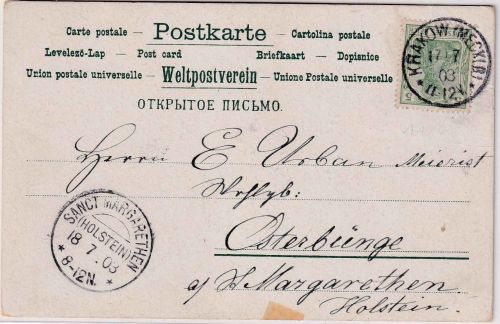 Carte postale - Postkarte - Cartolina postale
Levelező-Lap - Post card Briefkaart - Dopisnice
Union postale universelle - Weltpostverein - Unione Postale universelle
ОТКРЫТОЕ ПИСЬМО.
KRAKOW (MECKLB)
17 7
03
11-12V.
5
Herrn E Urban Meierist
Osterbünge
a/ St Margarethen
Holstein.
SANCT MARGARETHEN
(HOLSTEIN)
18 7.03
* 8-12N. *